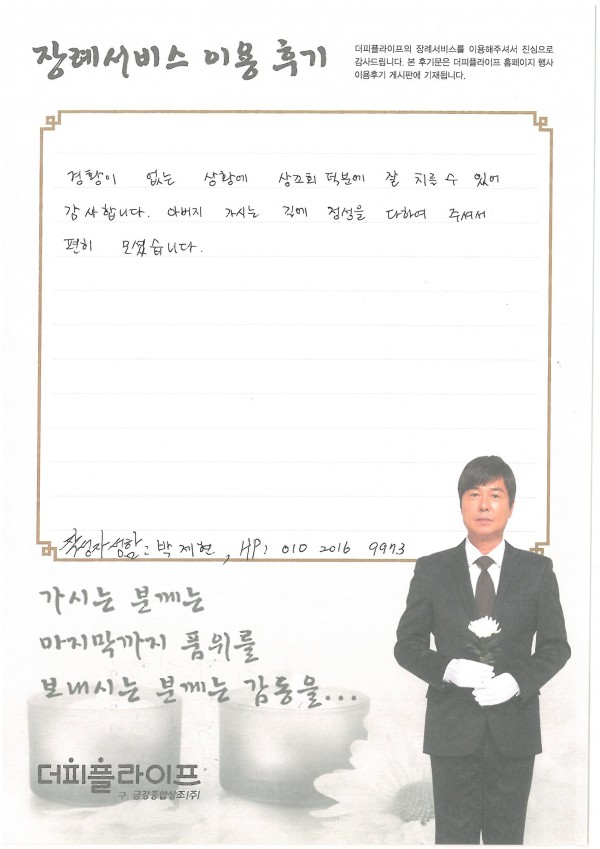 장례서비스 이용 후기
더피플라이프의 장례서비스를 이용해주셔서 진심으로
감사드립니다. 본 후기문은 더피플라이프 홈페이지 행사
이용후기 게시판에 기재됩니다.
경황이 없는 상황에 상조회 덕분에 잘 치를 수 있어
감사합니다. 아버지 가시는 길에 정성을 다하여 주셔서
편히 모셨습니다.
작성자 성함: 박제현, HP: 010 2016 9973
가시는 분께는
마지막까지 품위를
보내시는 분께는 감동을...
더피플라이프
구. 금강종합상조(주)